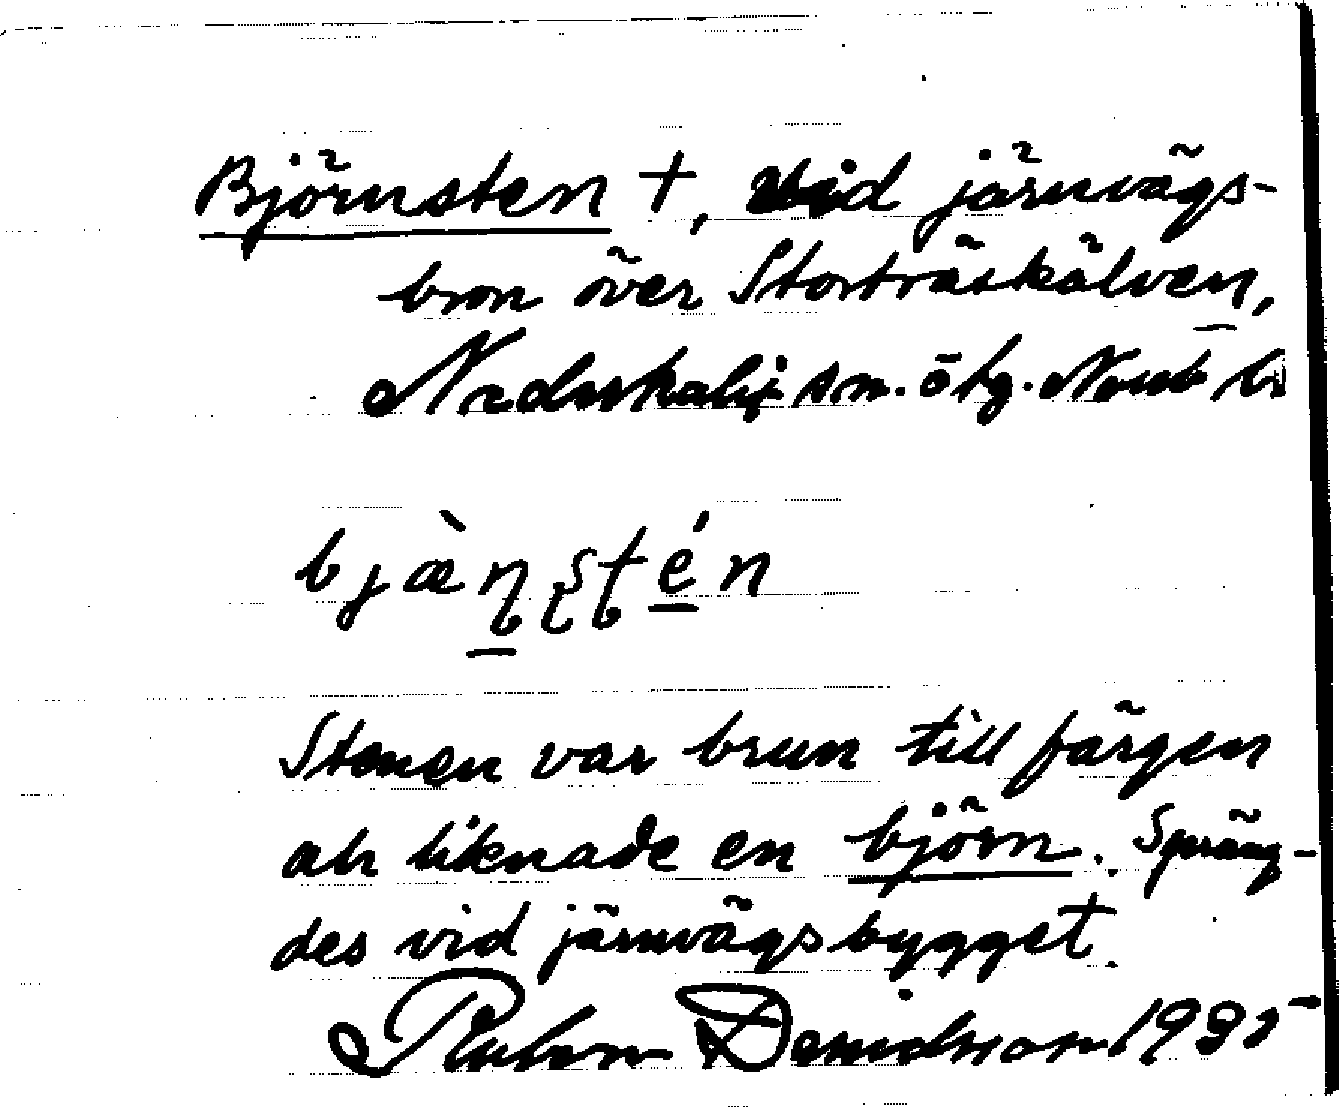 Björnsten +, vid järnvägs-
bron över Storträskälven,
Nederkalix sn. ö tg. Norrb
bjæ̀ṇʂʈén
Stenen var brun till färgen
och liknade en björn. Spräng-
des vid järnvägsbygget.
Ruben Danielsson